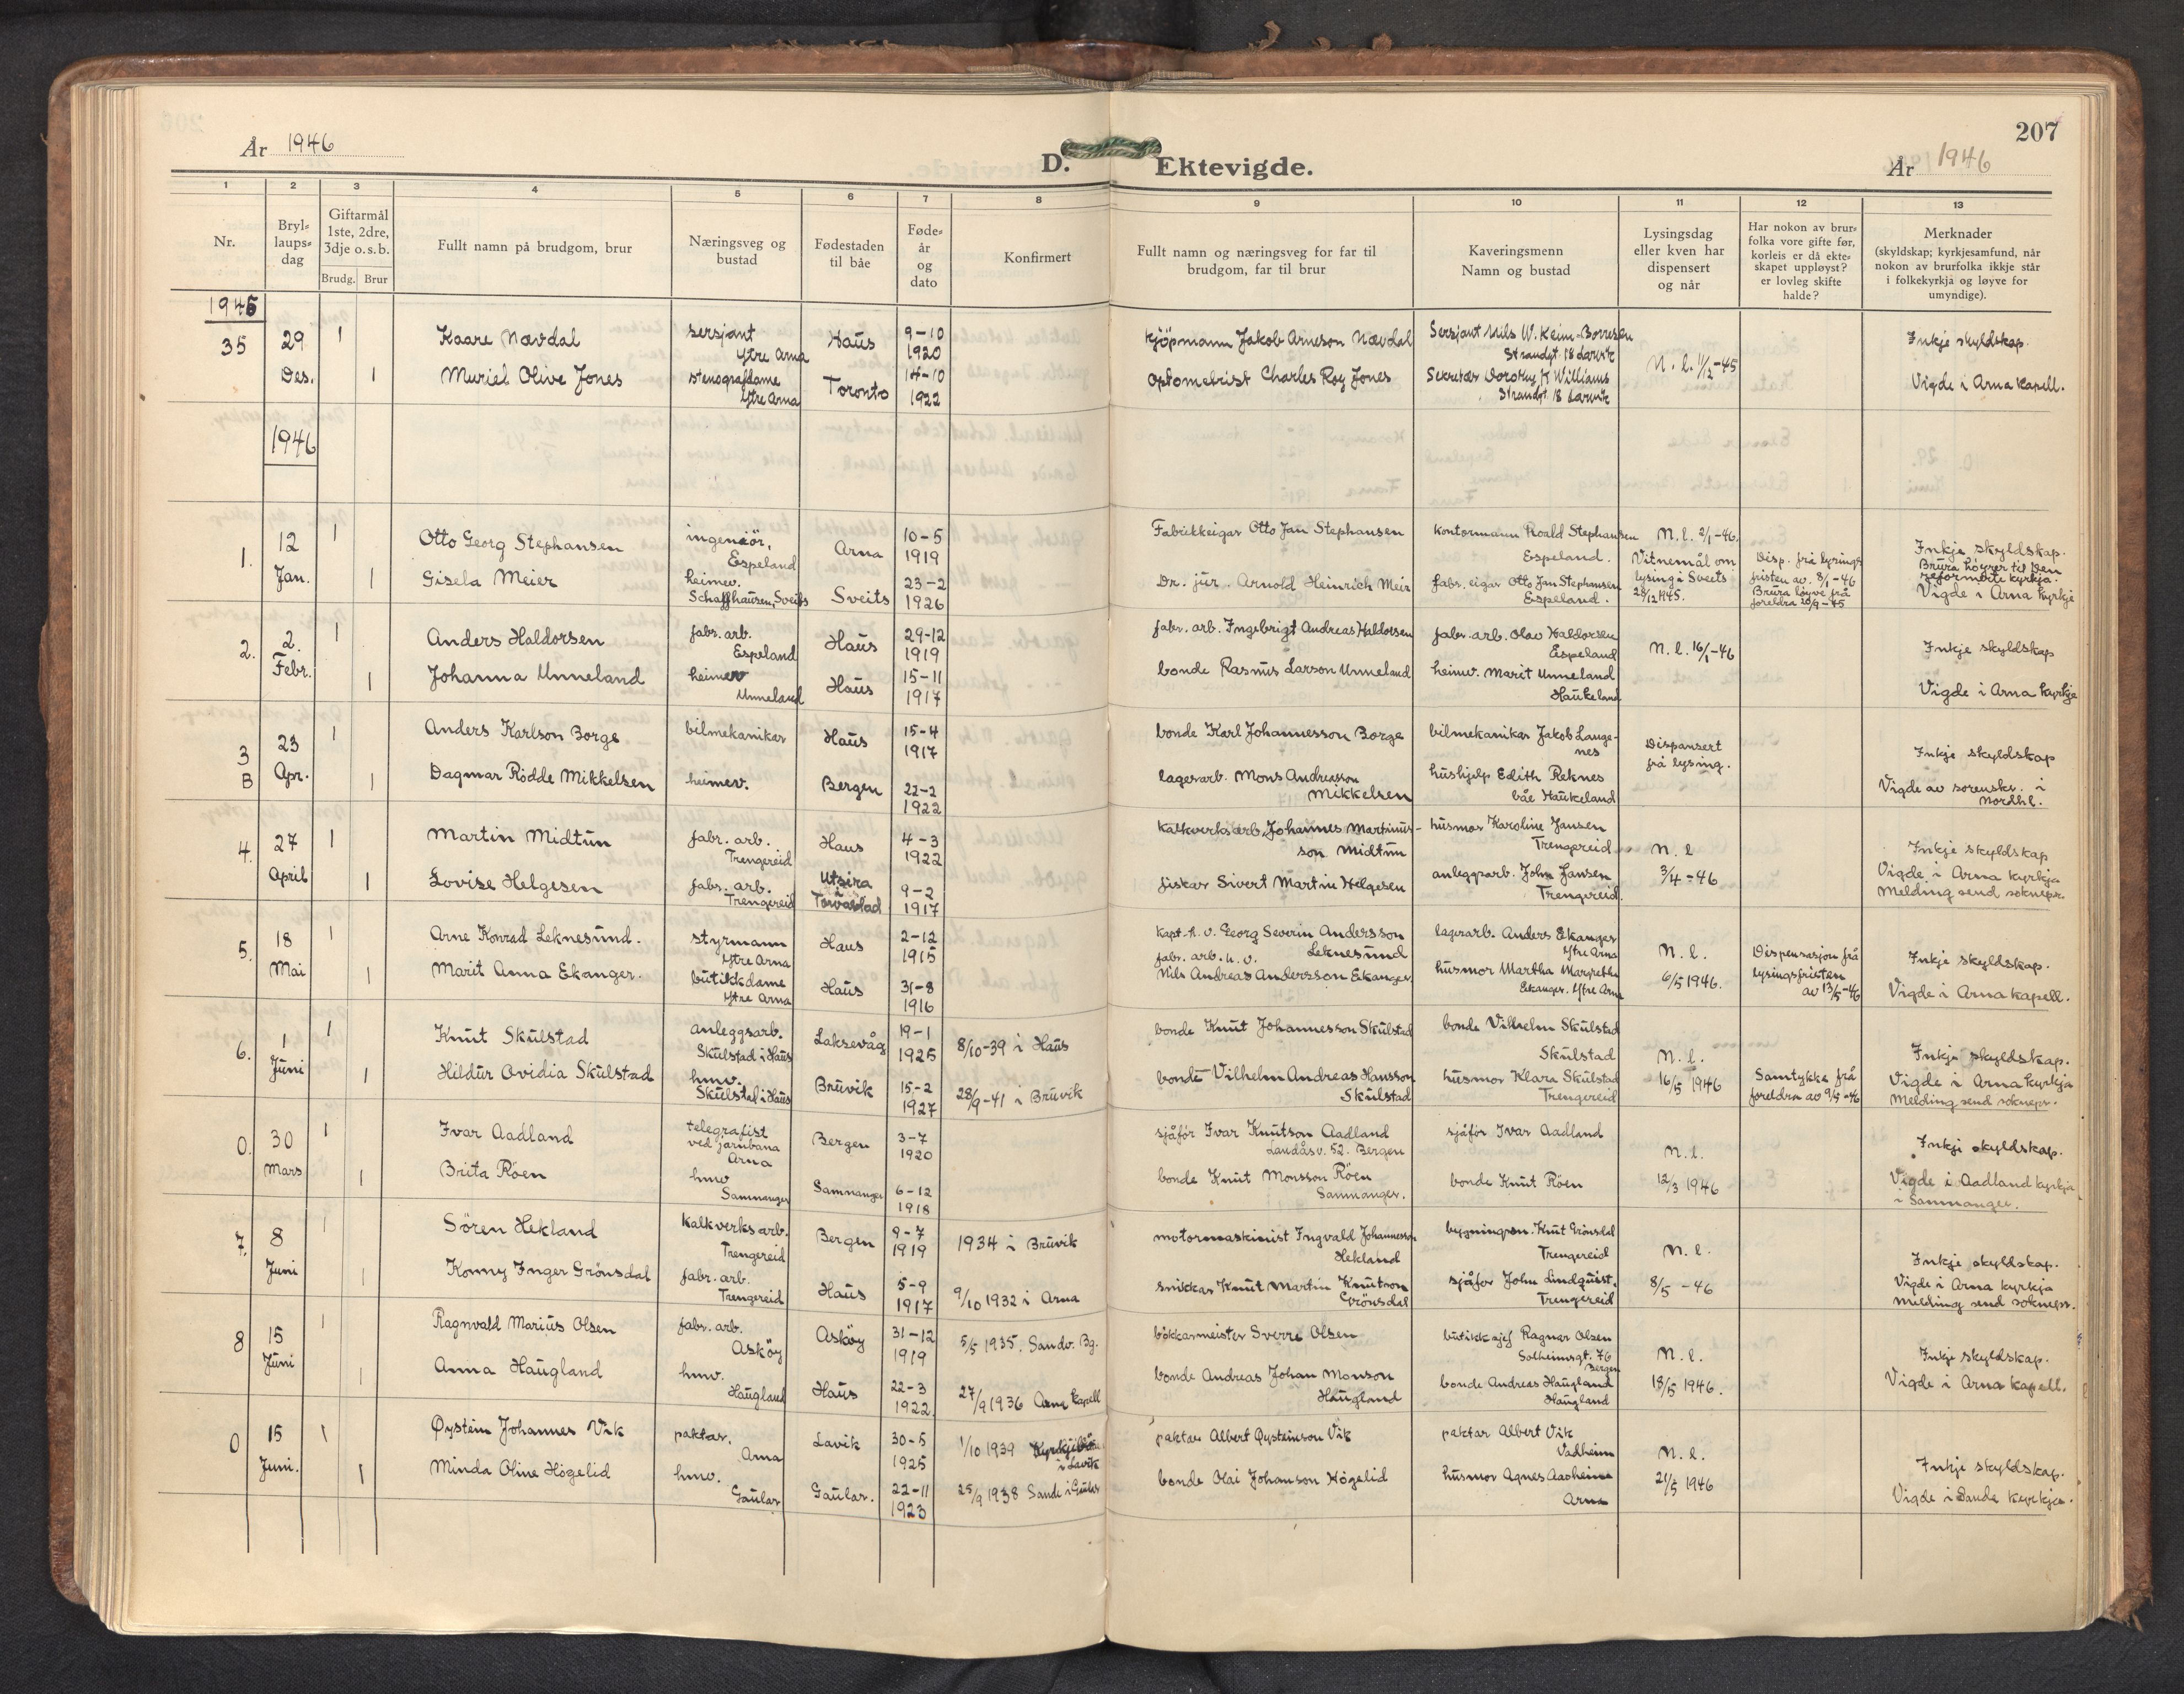 207
År 1946
D. Ektevigde.
År 1946
1 2 3 4 5 6 7 8 9 10 11 12 13
Nr.
Bryl-
laups-
dag
Giftarmål
1ste, 2dre,
3dje o.s.b.
Brudg. Brur
Fullt namn på brudgom, brur
Næringsveg og
bustad
Fødestaden
til båe
Føde-
år
og
dato
Konfirmert
Fullt namn og næringsveg for far til
brudgom, far til brur
Kaveringsmenn
Namn og bustad
Lysingsdag
eller kven har
dispensert
og når
Har nokon av brur-
folka vore gifte før,
korleis er då ekte-
skapet uppløyst?
er lovleg skifte
halde?
Merknader
(skyldskap; kyrkjesamfund, når
nokon av brurfolka ikkje står
i folkekyrkja og løyve for
umyndige).
1945
35
29
Des.
1
Kaare Nævdal
sersjant
Ytre Arna
Haus
9-10
1920
kjöpmann Jakob Arneson Nævdal
Sersjant Nils W. Keim-Borresen
Strandgt. 18 Larvik
N. l. 11/12-45
Inkje skyldskap.
1
Muriel Olive Jones
stenografdame
Ytre Arna
Toronto
14-10
1922
Optometrist Charles Roy Jones
Sekretær Dorothy M Williams
Strandgt 18 Larvik
Vigde i Arna Kapell.
1946
1.
12
Jan.
1
Otto Georg Stephansen
ingeniör,
Espeland
Arna
10-5
1919
Fabrikkeigar Otto Jan Stephansen
kontormann Roald Stephansen
Espeland.
N. l. 2/1-46.
Vitnemål om
lysing i Sveits
28/12 1945.
Disp. frå lysings
fristen av. 8/1-46
Brura løyve frå
foreldra 20/9-45
Inkje skyldskap.
Brura höyrer til den
reformerte kyrkja.
Vigde i Arna kyrkje
1
Gisela Meier
heimev.
Schaffhausen, Sveits
Sveits
23-2
1926
Dr. jur. Arnold Heinrich Meir
fabr. eigar Otto Jan Stephansen
Espeland.
2.
2.
Febr.
1
Anders Haldorsen
fabr. arb.
Espeland
Haus
29-12
1919
fabr. arb. Ingebrigt Andreas Haldorsen
fabr. arb. Olav Haldorsen
Espeland
N. l. 16/1-46
Inkje skyldskap
1
Johanna Unneland
heimev
Unneland
Haus
15-11
1917
bonde Rasmus Larson Unneland
heimv. Marit Unneland
Haukeland
Vigde i Arna kyrkje
3
B
23
Apr.
1
Anders Karlson Borge
bilmekanikar
Haus
15-4
1917
bonde Karl Johannesson Borge
bilmekanikar Jakob Lange-
nes
Dispansert
frå lysing.
Inkje skyldskap
1
Dagmar Rödde Mikkelsen
heimev.
Bergen
22-2
1922
lagerarb. Mons Andreasson
Mikkelsen
hushjelp Edith Reknes
båe Haukeland
Vigde av sorenskr. i
Nordhl.
4.
27
April
1
Martin Midtun
fabr. arb.
Trengereid
Haus
4-3
1922
kalkverksarb. Johannes Martinus-
son Midtun
husmor Karoline Jansen
Trengereid
N. l
3/4-46
Inkje skyldskap
1
Lovise Helgesen
fabr. arb.
Trengereid
Utsira
i
Torvastad
9-2
1917
fiskar Sivert Martin Helgesen
anleggsarb. John Jansen
Trengereid.
Vigde i Arna kyrkja
Melding send soknepr.
5.
18
Mai
1
Arne Konrad Leknesund.
styrmann
Ytre Arna
Haus
2-12
1915
Kapt. n. v. Georg Severin Andersson
Leknesund
lagerarb. Anders Ekanger
Ytre Arna
N. l.
6/5 1946.
Dispensasjon frå
lysingsfristen
av 13/5-46
Inkje skyldskap.
1
Marit Anna Ekanger.
butikkdame
Ytre Arna
Haus
31-8
1916
fabr. arb. n. v.
Nils Andreas Andersson Ekanger
husmor Martha Margrethe
Ekanger. Ytre Arna
Vigde i Arna kapell.
6.
1
Juni
1
Knut Skulstad
anleggsarb.
Skulstad i Haus
Laksevåg
19-1
1925
8/10-39 i Haus
bonde Knut Johannesson Skulstad
bonde Vilhelm Skulstad
Skulstad
N. l.
16/5 1946
Samtykke frå
foreldra av 9/5-46
Inkje skyldskap.
1
Hildur Ovidia Skulstad
hmv.
Skulstad i Haus
Bruvik
15-2
1927
28/9-41 i Bruvik
bonde Vilhelm Andreas Hansson
Skulstad
husmor Klara Skulstad
Trengereid
Vigde i Arna kyrkja
Melding send soknepr.
0.
30
Mars
1
Ivar Aadland
telegrafist
ved jarnbana
Arna
Bergen
3-7
1920
sjåfør Ivar Knutson Aadland
Landåsv. 52. Bergen
sjåfør Ivar Aadland
N. l.
12/3 1946
Inkje skyldskap.
1
Brita Röen
hmv
Samnanger
Samnanger
6-12
1918
bonde Knut Monsson Röen
Samnanger.
bonde Knut Röen
Vigde i Aadland kyrkja
i Samnanger.
7.
8
Juni
1
Sören Hekland
kalkverksarb.
Trengereid
Bergen
9-7
1919
1934 i Bruvik
motormaskinist Ingvald Johannesson
Hekland
Knut Grönsdal
Trengereid
N. l.
8/5-46
Inkje skyldskap.
1
Konny Inger Grönsdal
fabr. arb.
Trengereid
Haus
5-9
1917
9/10 1932 i Arna
snikkar Knut Martin Knutson
Grönsdal
sjåfør John Lindquist.
Trengereid
Vigde i Arna kyrkja
Melding send soknepr.
8
15
Juni
1
Ragnvald Marius Olsen
fabr. arb.
Asköy
Asköy
31-12
1919
5/5 1935. Sandv. Bg.
bökkarmeister Sverre Olsen
butikksjef Ragnar Olsen
Solheimsgt. 76
Bergen
N. l.
18/5 1946.
Inkje skyldskap.
1
Anna Haugland
hmv.
Haugland
Haus
22-3
1922.
27/9 1936 Arna Kapell
bonde Andreas Johan Monson
Haugland
bonde Andreas Haugland
Haugland
Vigde i Arna kapell.
0
15
Juni.
1
Øystein Johannes Vik
paktar.
Arna
Lavik
30-5
1925
1/10 1939
i Lavik
paktar Albert Øysteinson Vik
paktar Albert Vik
Vadheim
N. l.
21/5 1946
Inkje skyldskap.
1
Minda Oline Högelid
hmv.
Gaular
Gaular.
22-11
1923
25/9 1938 Sande i Gaular
bonde Olai Johanson Högelid
husmor Agnes Aaoheim
Arna
Vigde i Sande kyrkje.